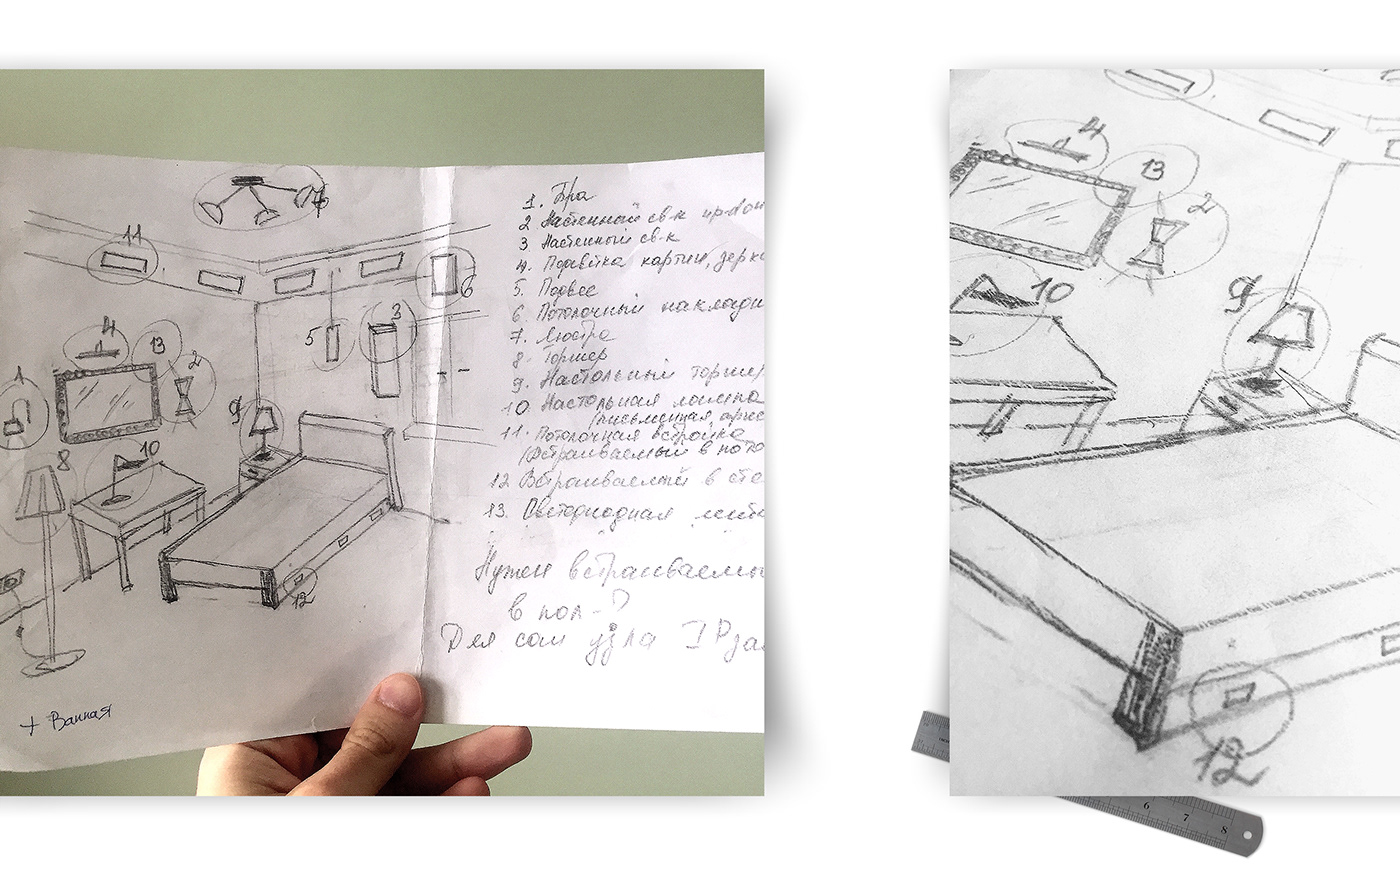 7
11
6
3
5
4
13
2
1
9
10
8
12
+ Ванная
1. Бра
2 Настенный св-к
3 Настенный св-к
4. Подсветка картин, зерка
5. Подвес
6. Потолочный накладн
7. Люстра
8. Торшер
9. Настольный торшер
10 Настольная лампа
(письменная,
11. Потолочная встройка
(Встраиваемый в пото
12 Встраиваемый в сте
13. Светодиодная лента
Нужен встраиваемы
в пол-?
Для сан узла IP
4
13
2
10
9
12
6 7 8